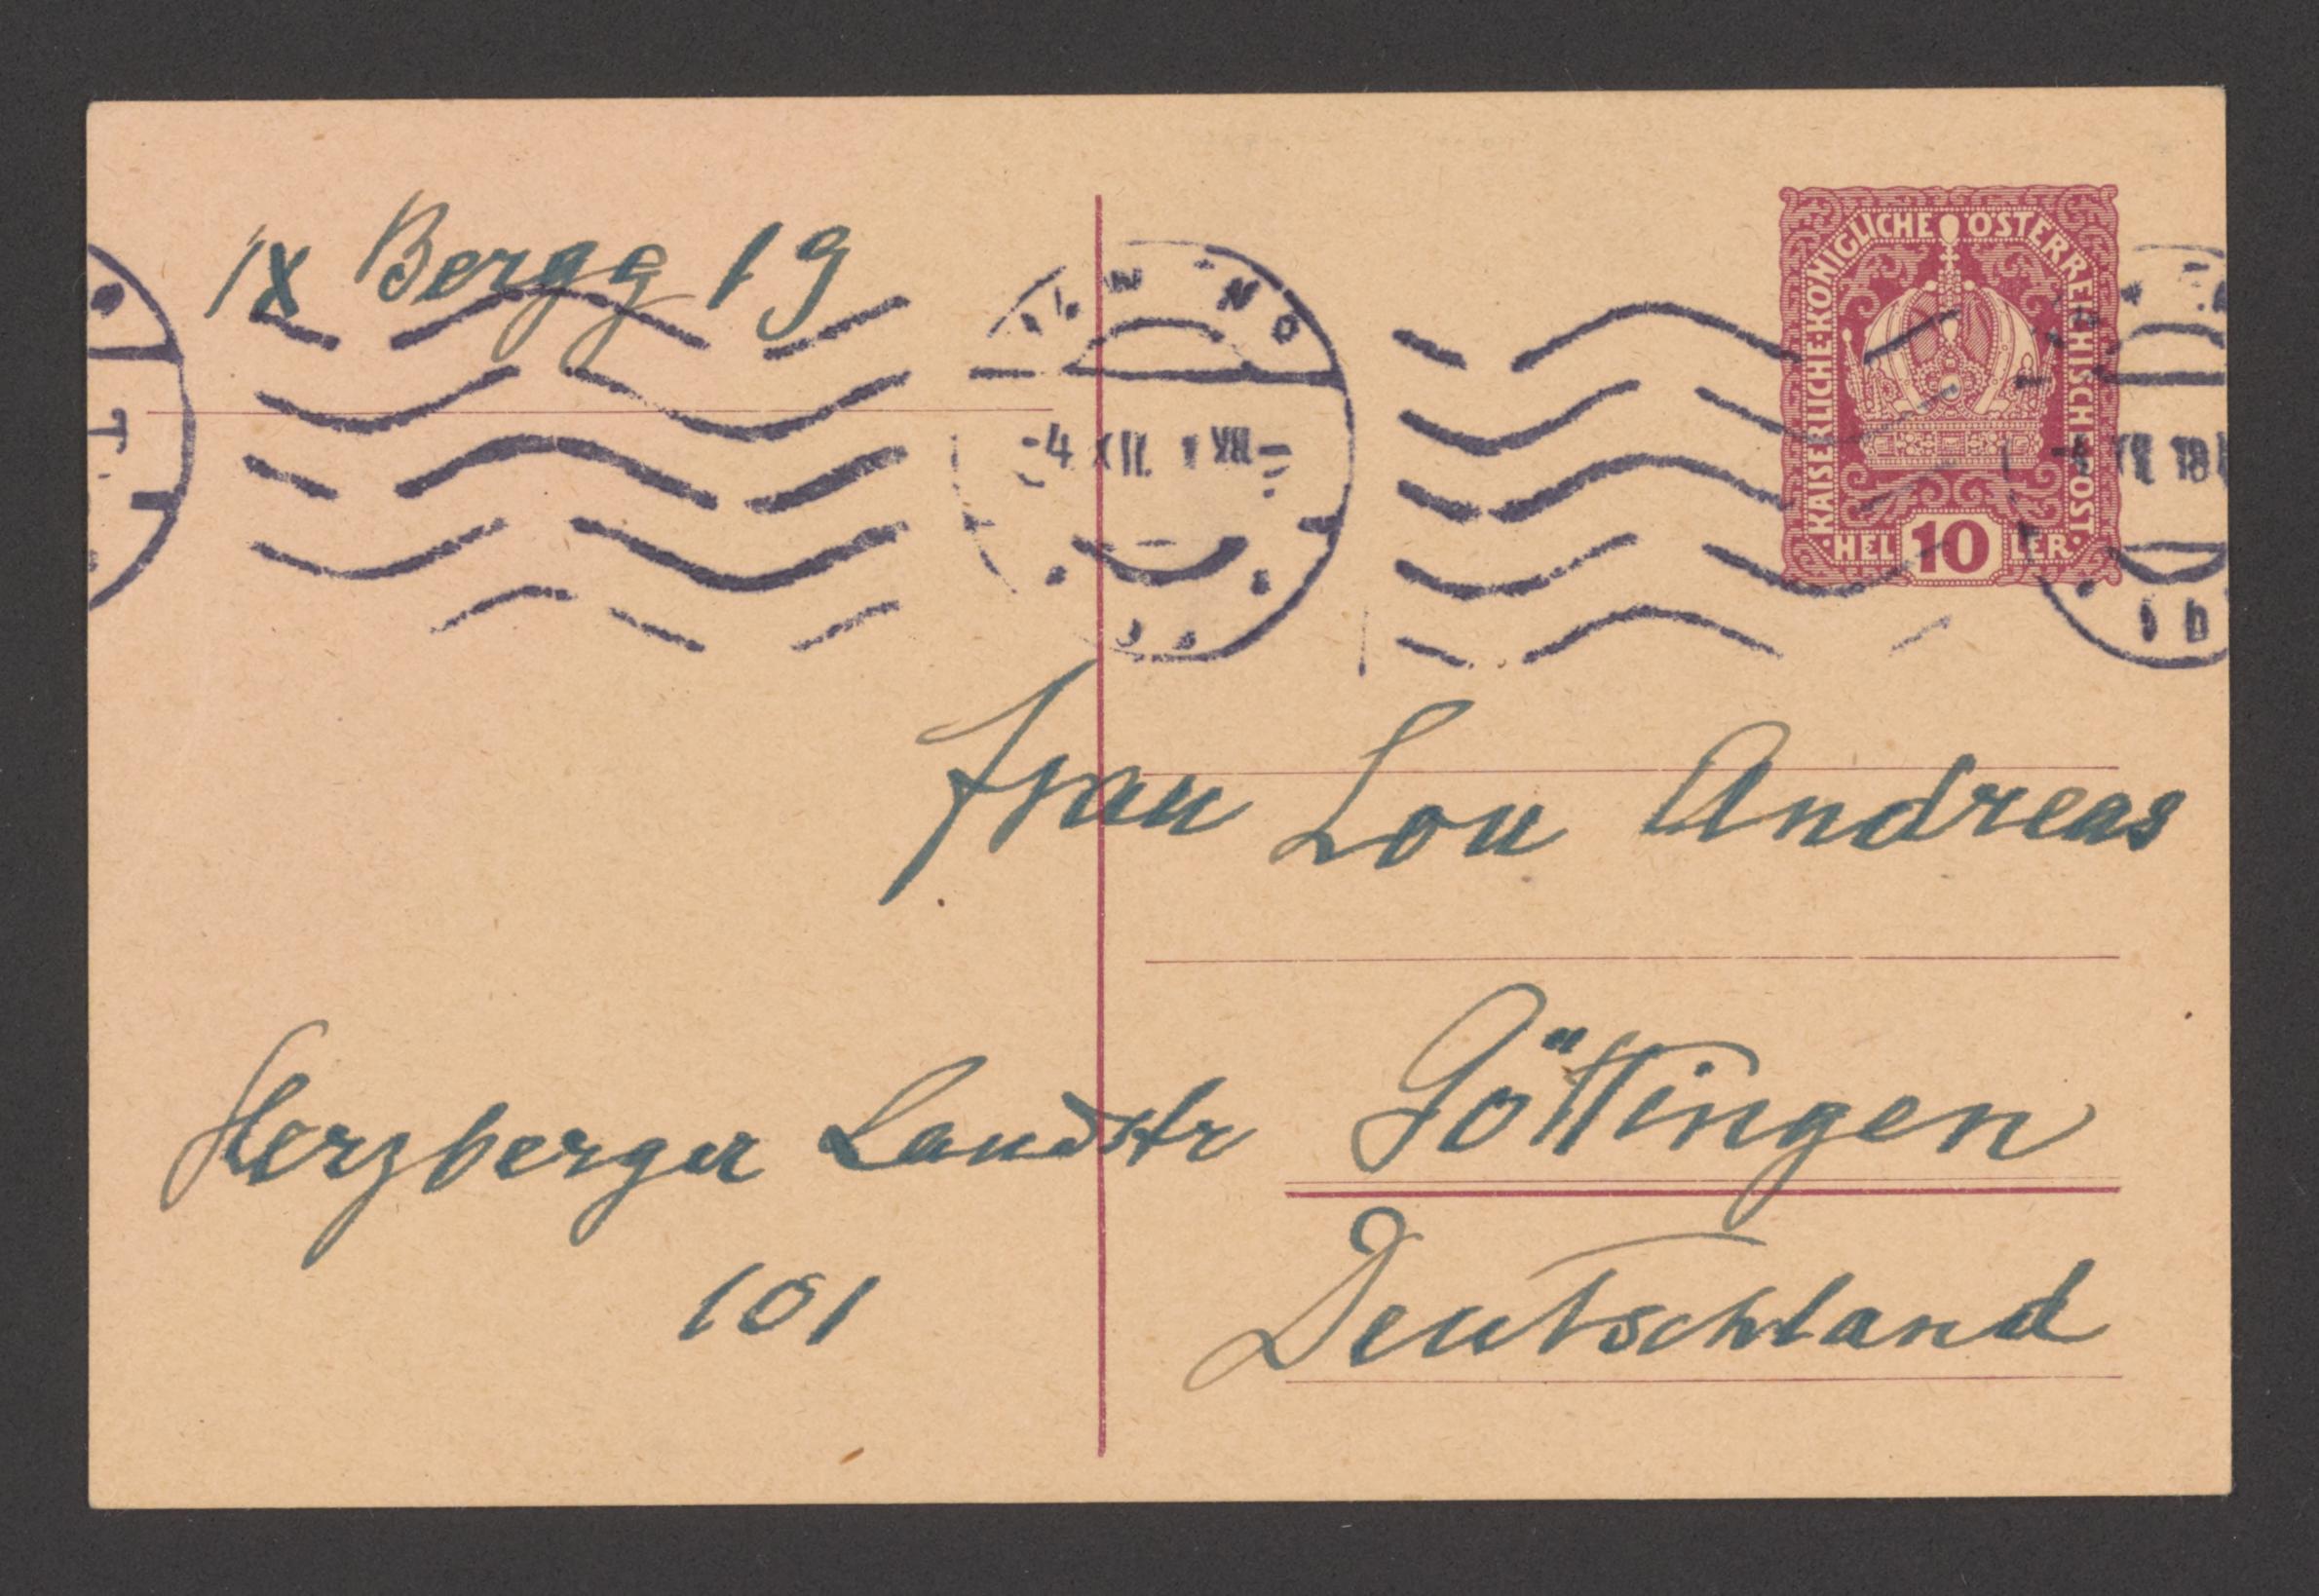 IX Bergg 19
KAISERLICHE KÖNIGLICHE ÖSTERREICHISCHE POST
HEL 10 LER
Frau Lou Andreas
Herzberger Landstr Göttingen
101
Deutschland